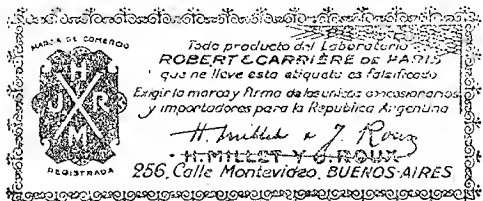 MARCA DE COMERCIO
H
J R
M
REGISTRADA
Todo producto del Laboratorio
ROBERT & CARRIÈRE DE PARIS
que no lleve esta etiqueta es falsificado
Exigir la marca y firma de los unicos concesionarios
y importadores para la Republica Argentina
H. Millet & J. Roux
H. MILLET Y J. ROUX
256, Calle Montevideo, BUENOS AIRES